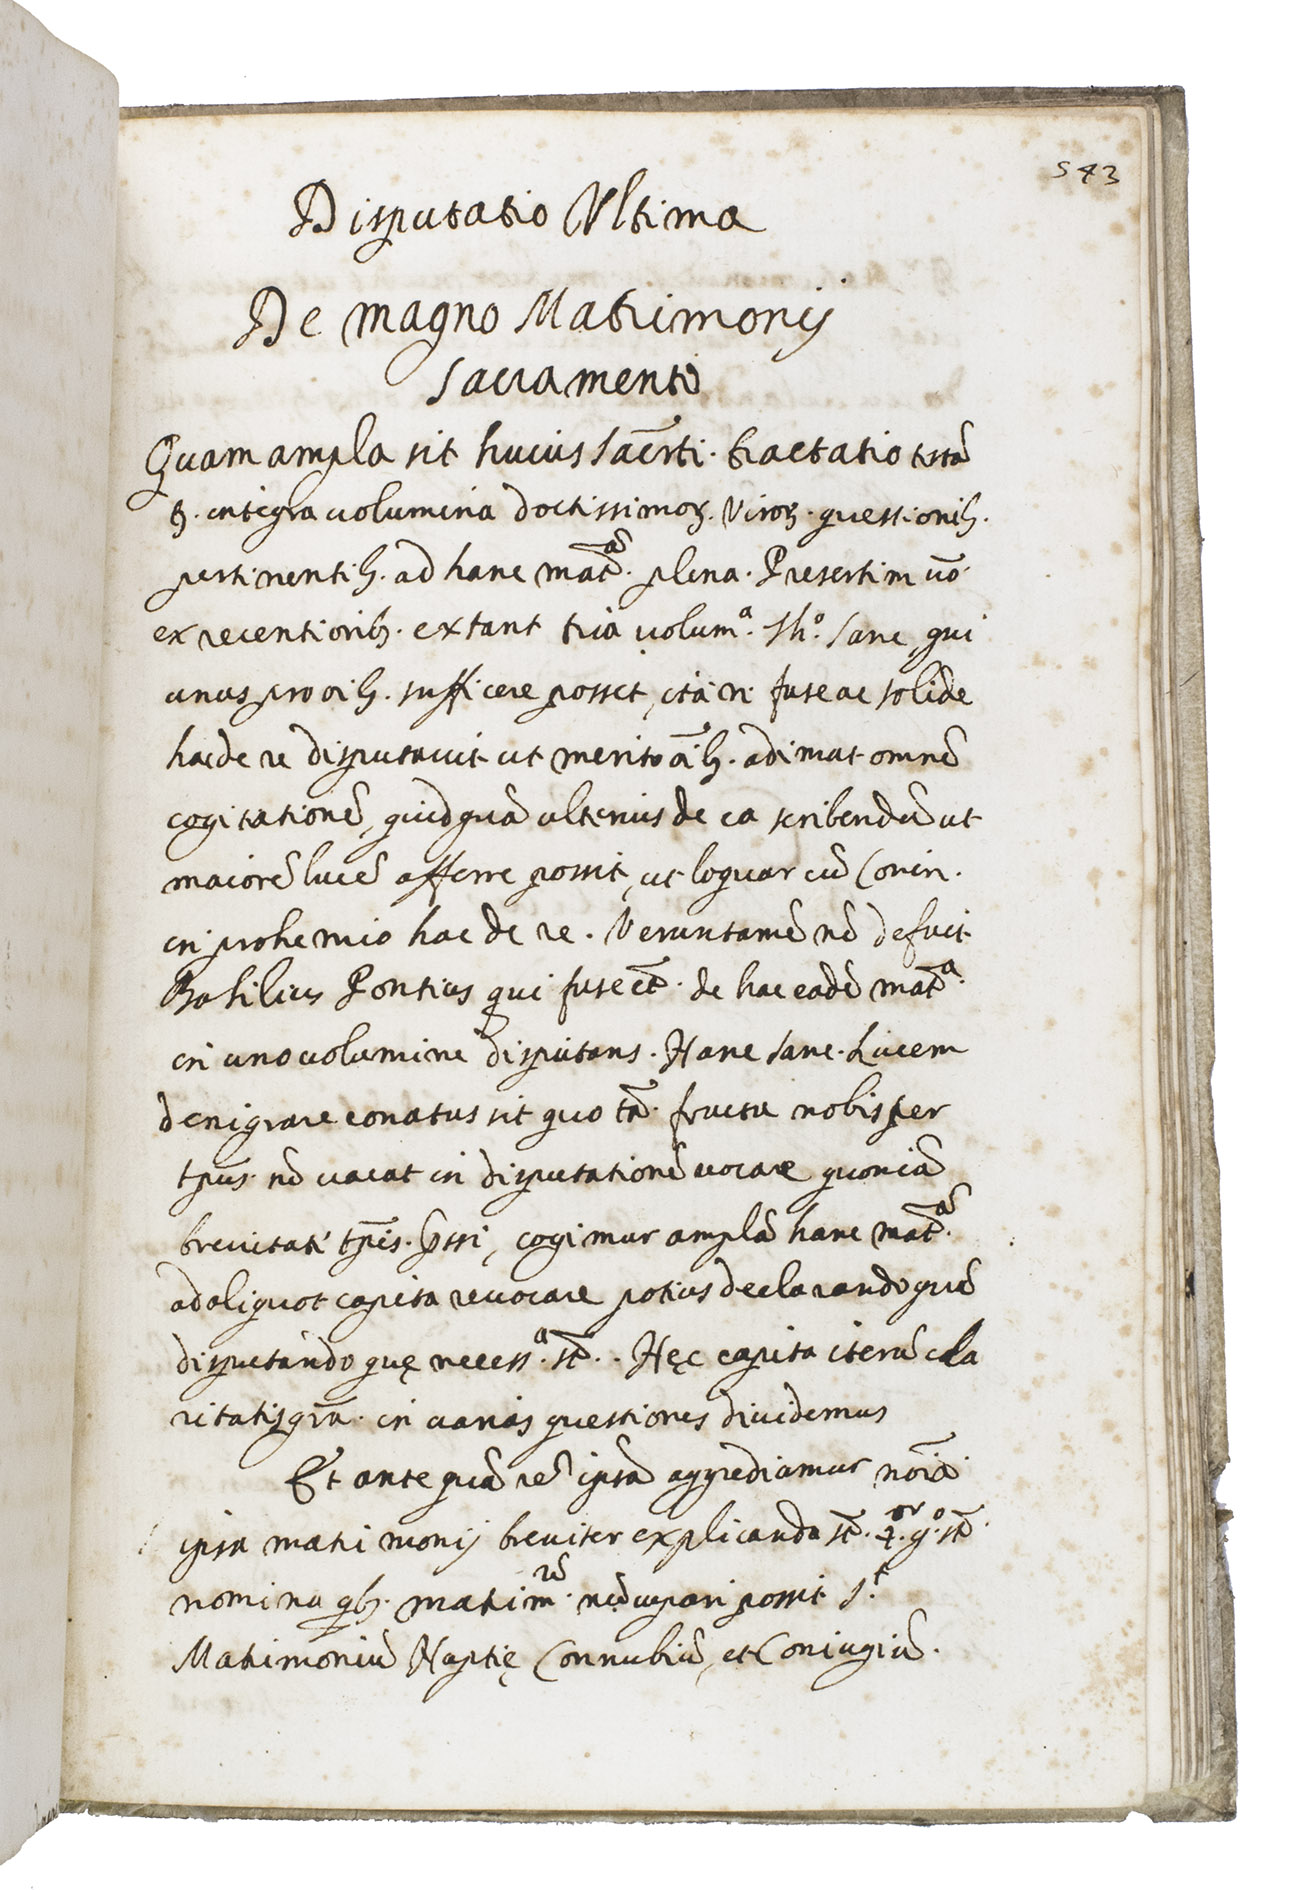 543
Disputatio Ultima
De magno Matrimonij
Sacramento
Quam ampla sit huius Sacr̃ti. tractatio testã
integra volumina doctissimoꝝ. Viroꝝ. questionib.
pertinentib. ad hanc mat̃ã. plena. Presertim vo
ex recentiorib. extant tria volumª. Thº. Sanc, qui
unus pro oib. sufficere posset, ita n. fuse ac solide
hac de re disputavit ut merito oib. adimat omnẽ
cogitationẽ, quidquã ulterius de ea scribendũ ut
maiorẽ lucẽ afferre possit, ut loquar cũ Conin.
in prohemio hac de re. Veruntamẽ nõ defuit
Basilius Pontius qui fuse et̃. de hac eadẽ mat̃ª.
in uno volumine disputans. Hanc sane. Lucem
denigrare conatus sit quo tã. fructu nobis per
tpus. nõ vacat in disputationẽ vocare quoniã
brevitati tp̃is. p̃ssi, cogimur amplã hanc mat̃ã.
ad aliquot capita revocare potius declarando quã
disputando quę necessª. st̃. Hęc capita iterũ cla
ritatis gr̃a. in varias questiones dividemus
Et ante quã rẽ ipsã aggrediamur noĩa
ipsa matrimonij breviter explicanda st̃. 4.or gº. st̃
nomina qb. matrim̃. nũcupari possit S.t
Matrimoniũ Nuptię Connubiũ, et Coniugiũ.